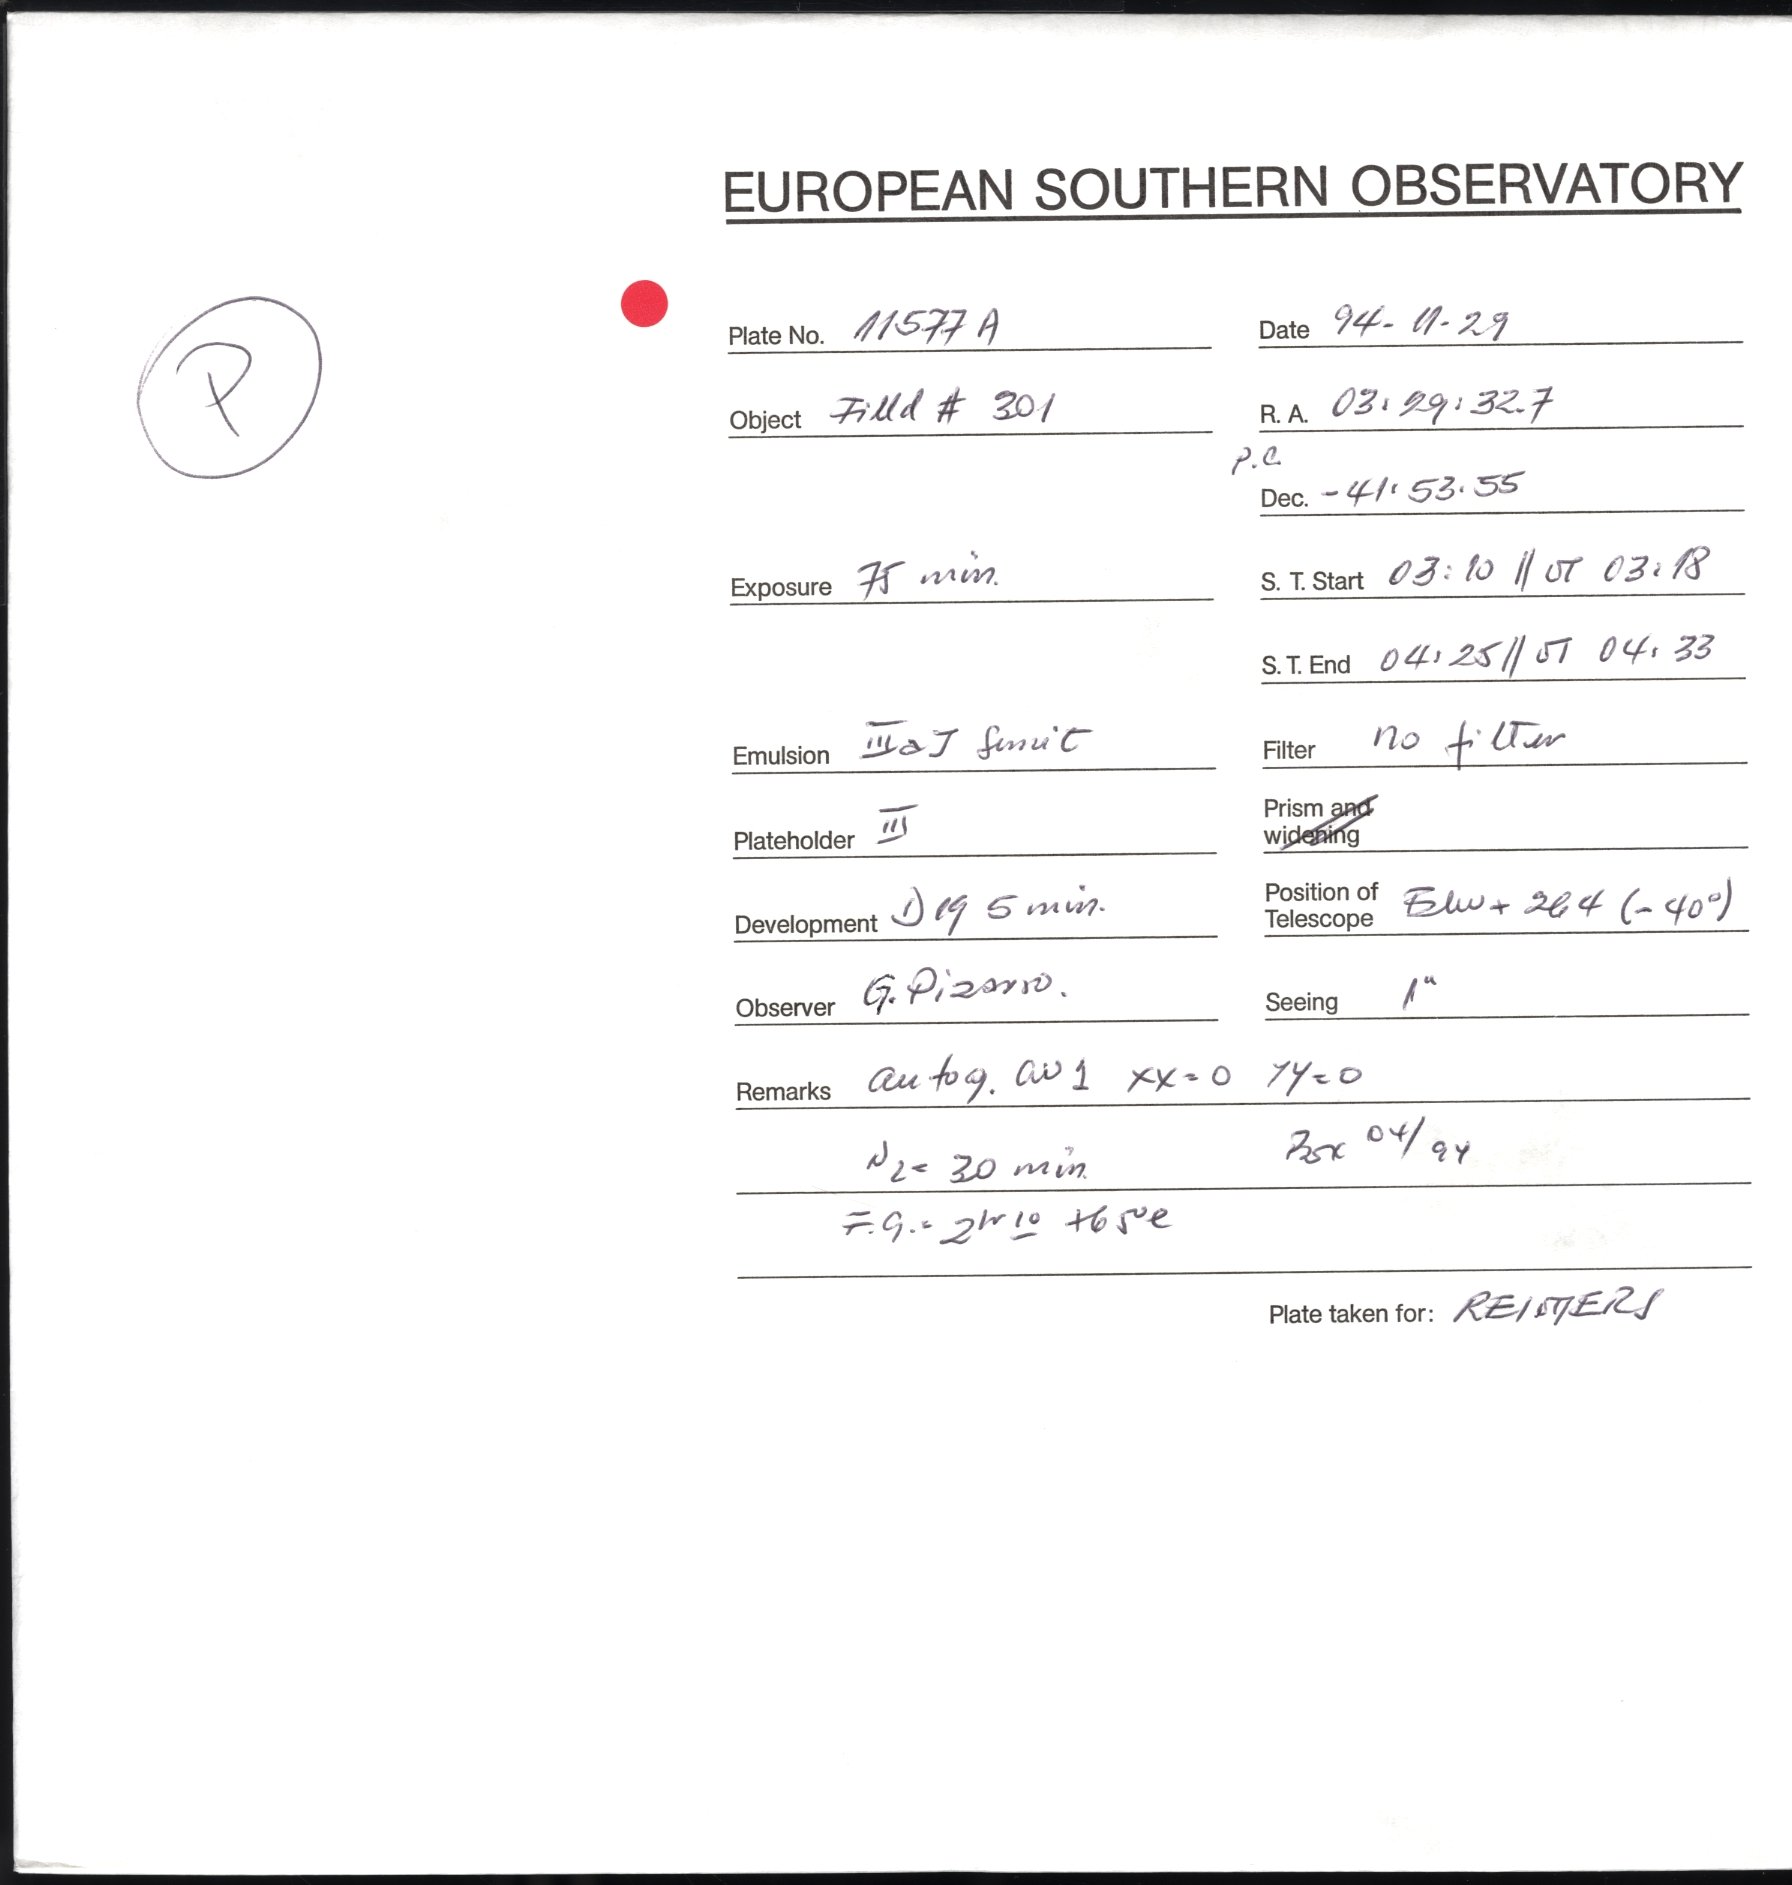 EUROPEAN SOUTHERN OBSERVATORY
P
Plate No. 11577 A
Date 94-11-29
Object Field # 301
R. A. 03:29:32.7
P.C.
Dec. -41:53:55
Exposure 75 min.
S. T. Start 03:10 // UT 03:18
S. T. End 04:25 // UT 04:33
Emulsion IIIaJ
Filter no filter
Plateholder III
Prism and widening
Development D19 5 min.
Position of Telescope + 264 (-40°)
Observer G. Pizarro.
Seeing 1"
Remarks autog. xx=0 yy=0
N2= 30 min. Box 04/94
F.G.= 2hr 10 +65°C
Plate taken for: REIMERS